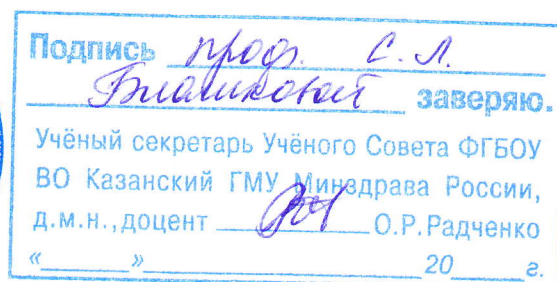 Подпись проф. С. Л.
Блашковой заверяю.
Учёный секретарь Учёного Совета ФГБОУ
ВО Казанский ГМУ Минздрава России,
д.м.н., доцент О.Р.Радченко
«______»____________________20_____г.